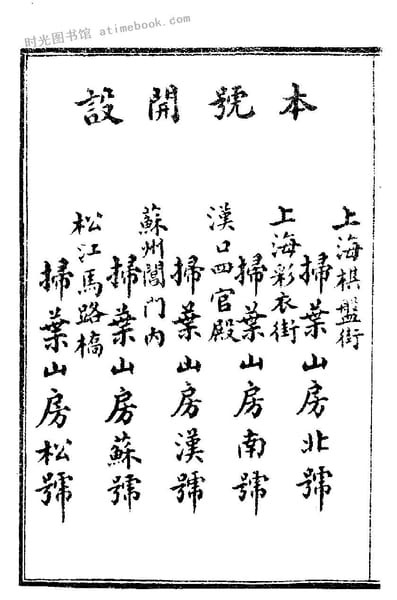 时光图书馆 atimebook.com
本號開設
上海棋盤街
掃葉山房北號
上海彩衣街
掃葉山房南號
漢口四官殿
掃葉山房漢號
蘇州閶門內
掃葉山房蘇號
松江馬路橋
掃葉山房松號